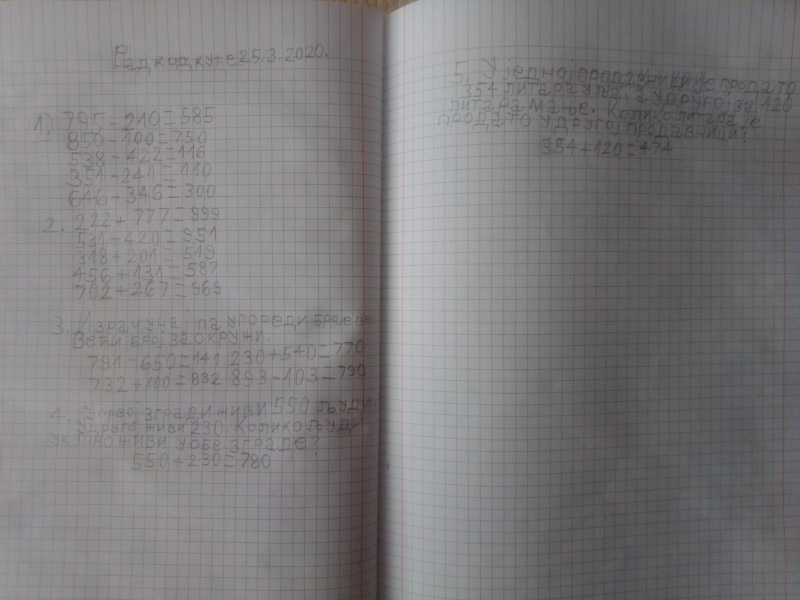 Рад код куће 25.3.2020.
1) 795-210=585
850-100=750
538-422=116
351-241=110
646-346=300
2. 222+777=999
531+420=951
318+201=519
456+131=587
702+267=969
3. Израчунај па упореди бројеве
Већи број заокружи.
791-650=141 230+540=770
732+100=832 893-103=790
4. У првој згради живи 550 људи.
У другој живи 230. Колико људи
укупно живи у обе зграде?
550+230=780
5. У једној продавници је продато
354 литара уља, а у другој за 120
литара мање. Колико литара је
продато у другој продавници?
354+120=474